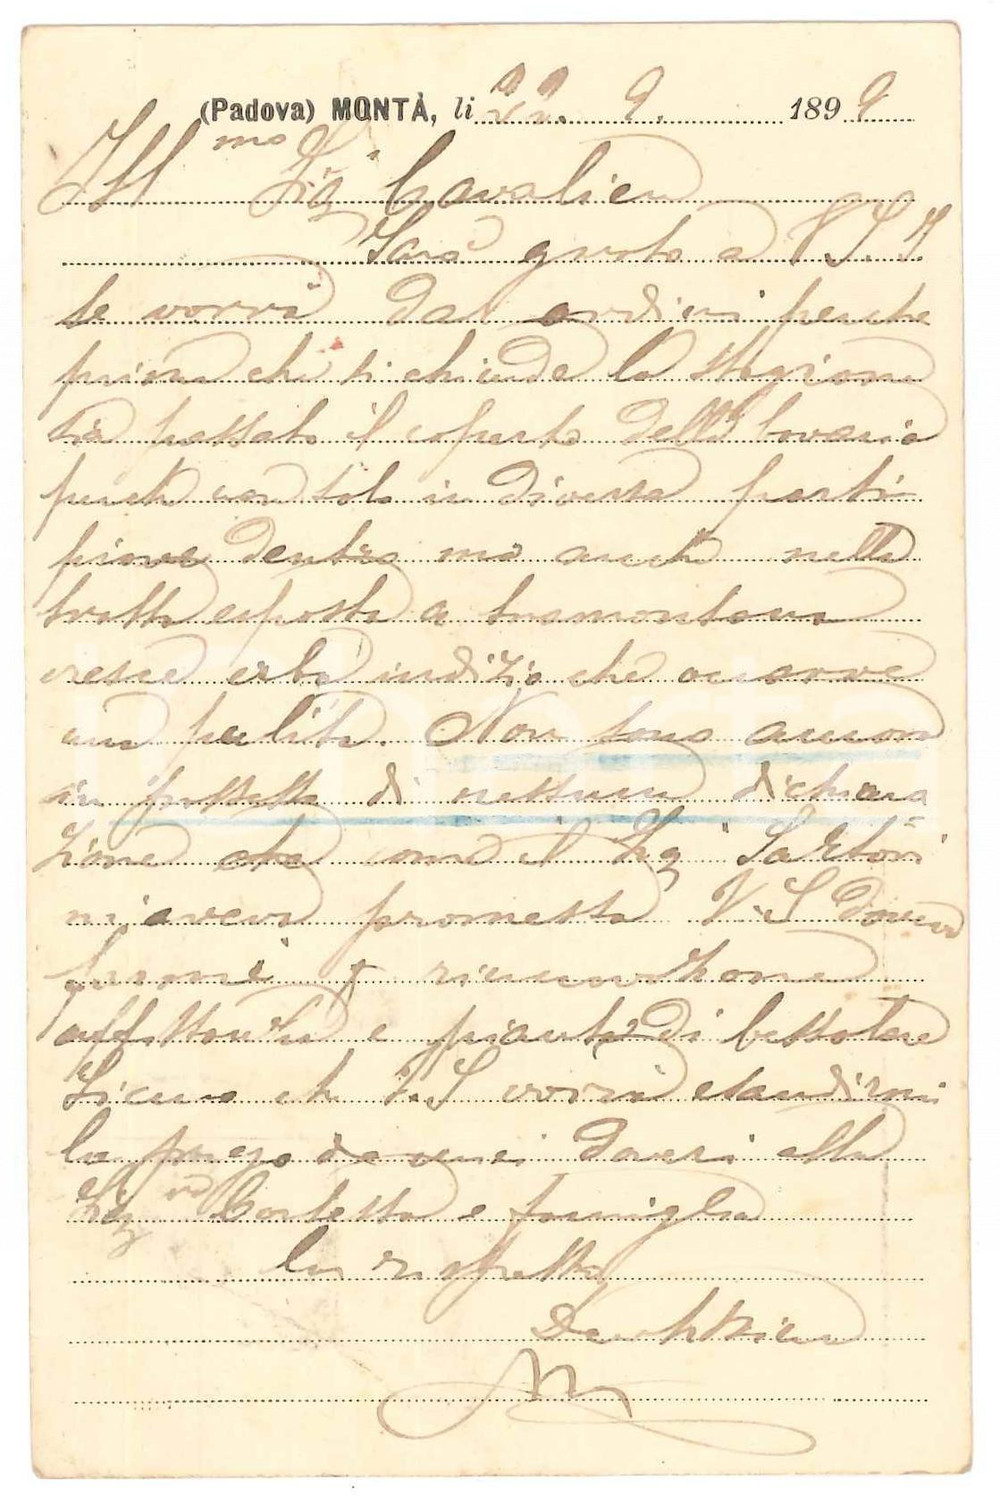 (Padova) MONTÀ, li 22. 9. 1899
Ill mo Sig Cavaliere
Sarà grato a V S. I.
se vorrà dar ordini perche
prima che si chiude la stagione
sia passato il coperto della boveria
perche non solo in diverse parti
piove dentro ma anche nella
tratta esposta a tramontana
cresce erba indizio che occorre
una pulita. Non sono ancora
in possesso di nessuna dichiara
zione che come il Sig Sartori
mi aveva promesso V. S doveva
farmi riconvenzione
affittanza e pianta di bessolare
Sicuro che V. S vorrà esaudirmi
la prego da miei doveri alla
Sig ra Contessa e famiglia
La rispetto